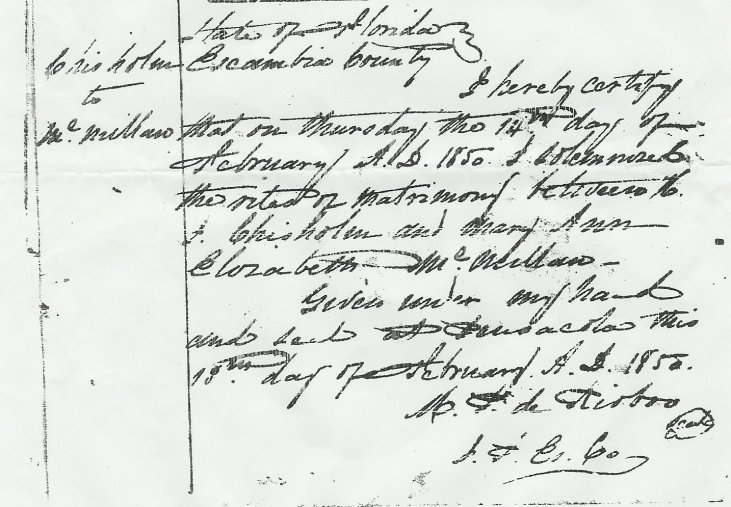 State of Florida }
Chisholm Escambia County
to I hereby certify
Mc. Millan that on Thursday the 14th day of
February A. D. 1850. I Solemnized
the rites of matrimony between
J. Chisholm and Mary Ann
Elizabeth Mc. Millan
Given under my hand
and seal at Pensacola this
18th day of February A. D. 1850.
M. F. de
Seal
J. P. Es. Co